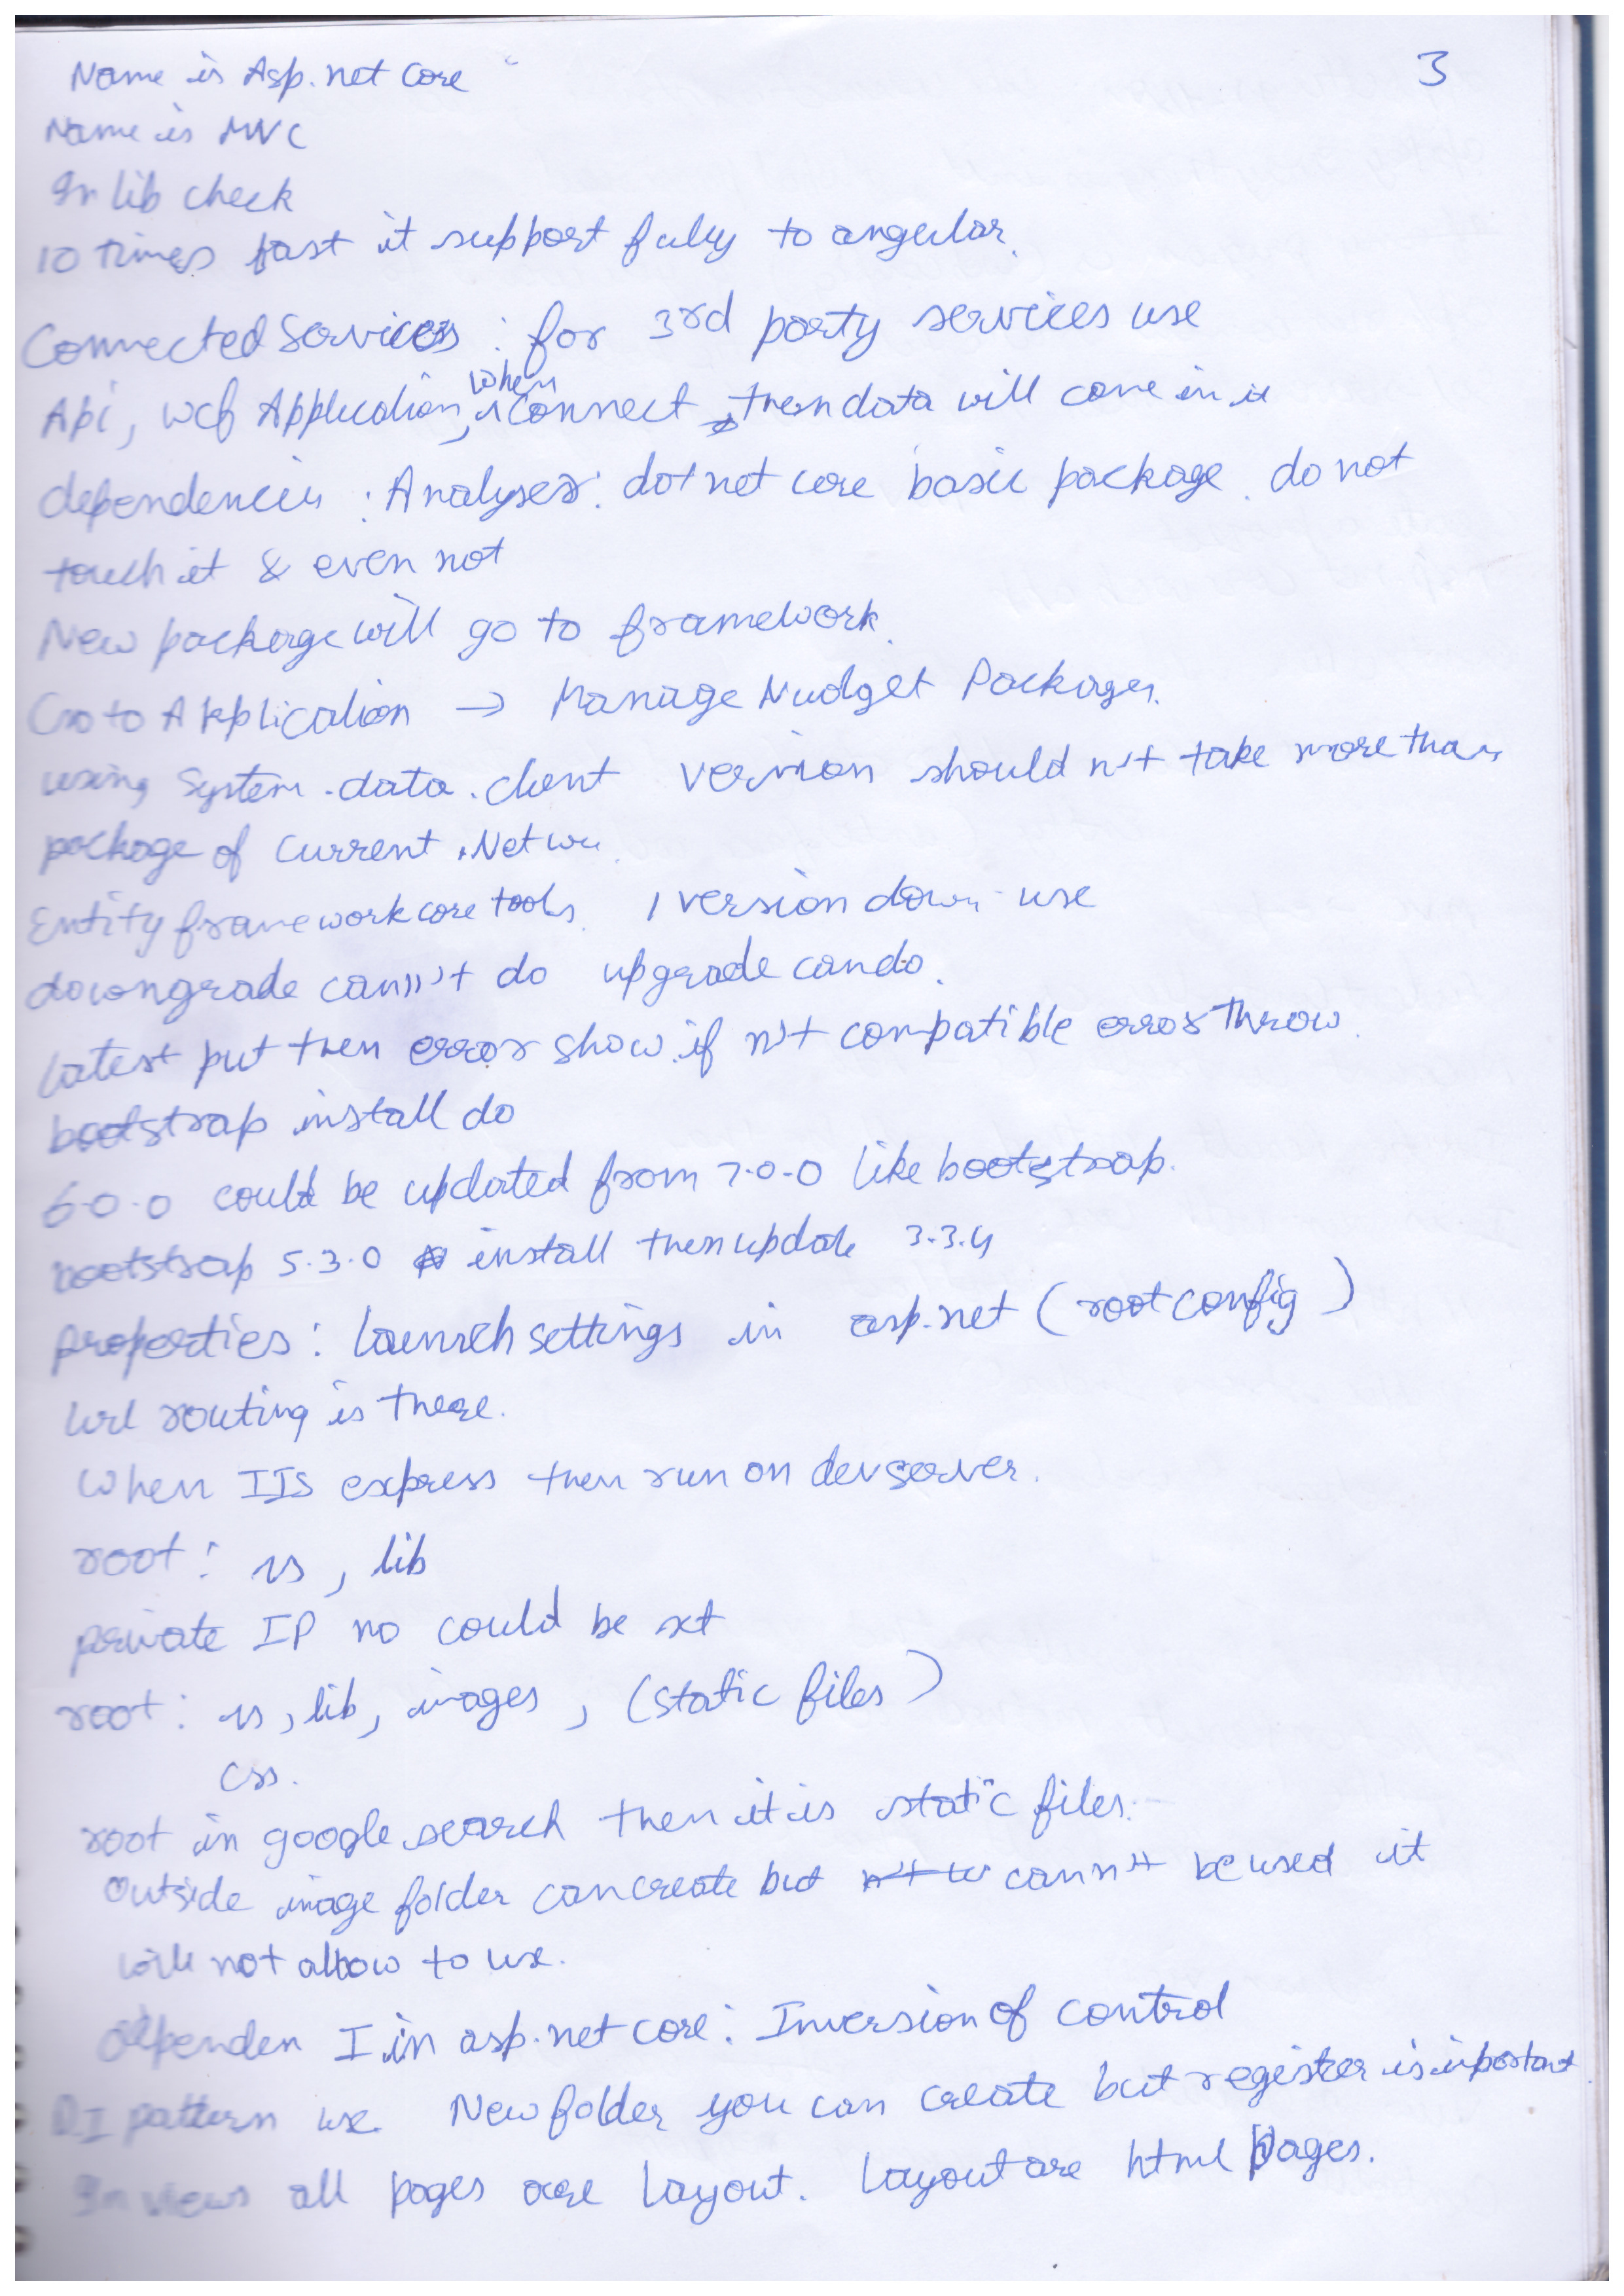 Name is Asp.net Core
3
Name is MVC
In lib check
10 times fast it support fully to angular.
Connected Services : for 3rd party services use
Api, wcf Application, when connect, then data will come in it
dependencies : Analyser : dot net core basic package. do not
touch it & even not
New package will go to framework.
Go to Application → Manage Nudget Packages.
using System.data.client version should n't take more than
package of current .Net
Entity framework core tools. 1 version down use
downgrade can't do upgrade can do.
Latest put then error show. if n't compatible error throw.
bootstrap install do
6.0.0 could be updated from 7.0.0 like bootstrap.
bootstrap 5.3.0 install then update 3.3.4
properties : launch settings in asp.net (root config)
Url routing is there.
When IIS express then run on dev server.
root : js, lib
private IP no could be set
root : js, lib, images, (static files)
css.
root in google search then it is static files.
Outside image folder can create but cann't be used it
will not allow to use.
dependen I in asp.net core : Inversion of control
D.I pattern use. New folder you can create but register is important.
In views all pages are layout. Layout are html pages.